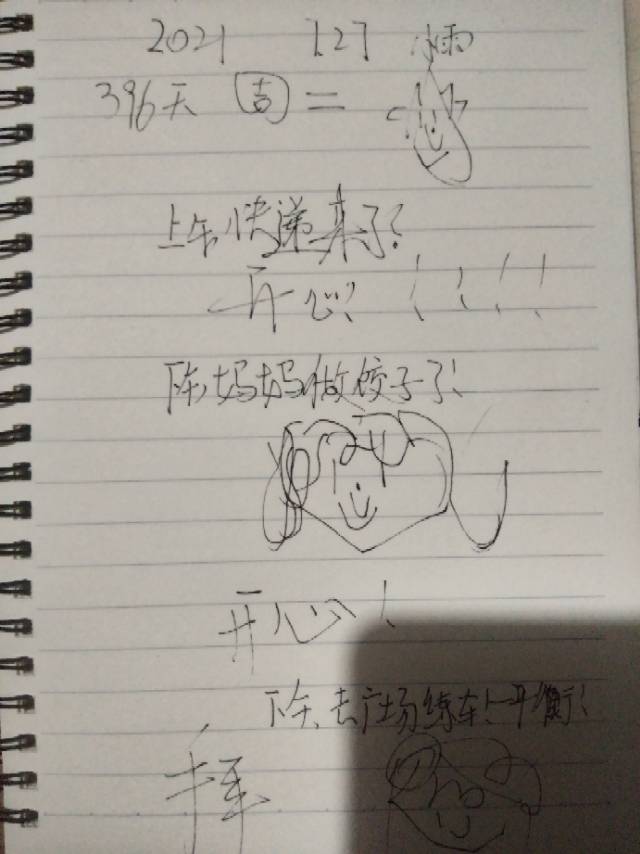 2021 127 小雨
396天 周二
上午快递来了!
开心! ! ! ! !
下午,妈妈做饺子了!
开心!
下午,去广场练车上平衡!